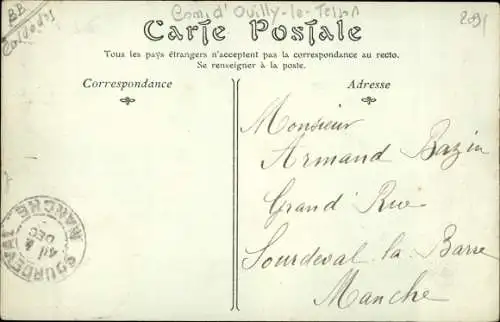 BB
Calvados
Com. d'Ouilly-le-Tesson
Carte Postale
Tous les pays étrangers n'acceptent pas la correspondance au recto.
Se renseigner à la poste.
Correspondance
Adresse
Monsieur
Armand Bazin
Grand Rue
Sourdeval la Barre
Manche
SOURDEVAL
MANCHE
DEC